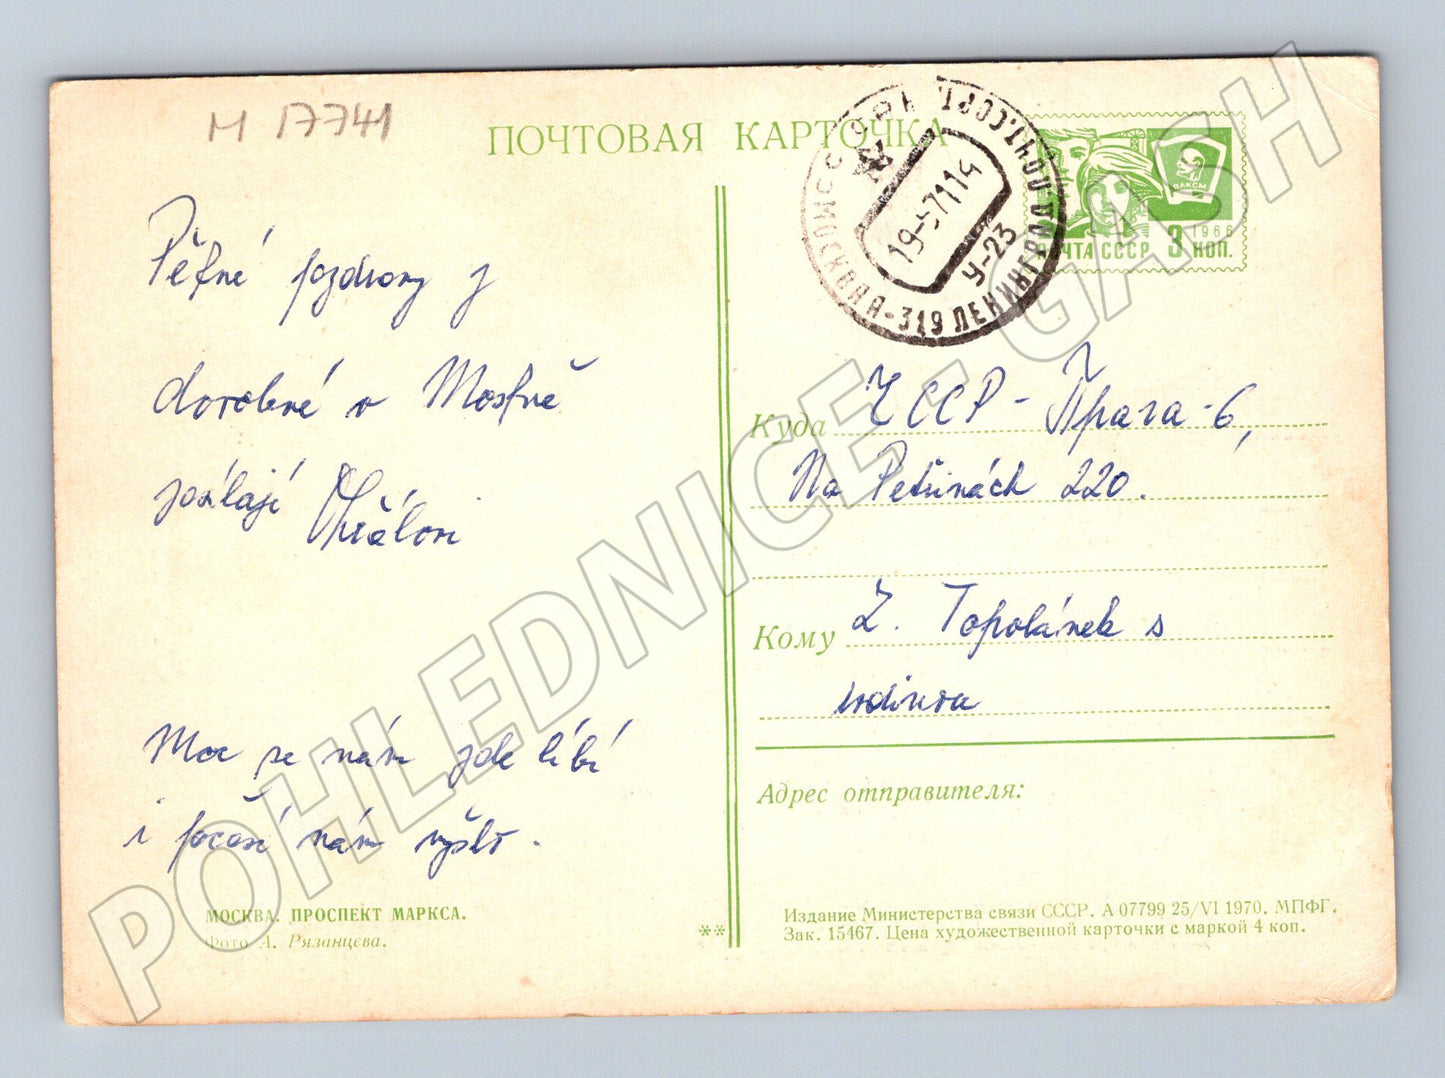 M 17741
ПОЧТОВАЯ КАРТОЧКА
МОСКВА-319 ЛЕНИНГРАД.ПОЧТ.СОРТ.
19-5711
У-23
ВЛКСМ
1966
ПОЧТА СССР 3 КОП.
Pěkné pozdravy z
dovolené v Moskvě
posílají Královi
Moc se nám zde líbí
i počasí nám vyšlo.
Куда ЧССР - Прага-6,
Na Petřinách 220.
Кому Z. Topolánek s
rodinou
Адрес отправителя:
МОСКВА. ПРОСПЕКТ МАРКСА.
Фото А. Рязанцева.
**
Издание Министерства связи СССР. А 07799 25/VI 1970. МПФГ.
Зак. 15467. Цена художественной карточки с маркой 4 коп.
POHLEDNICE - GASH